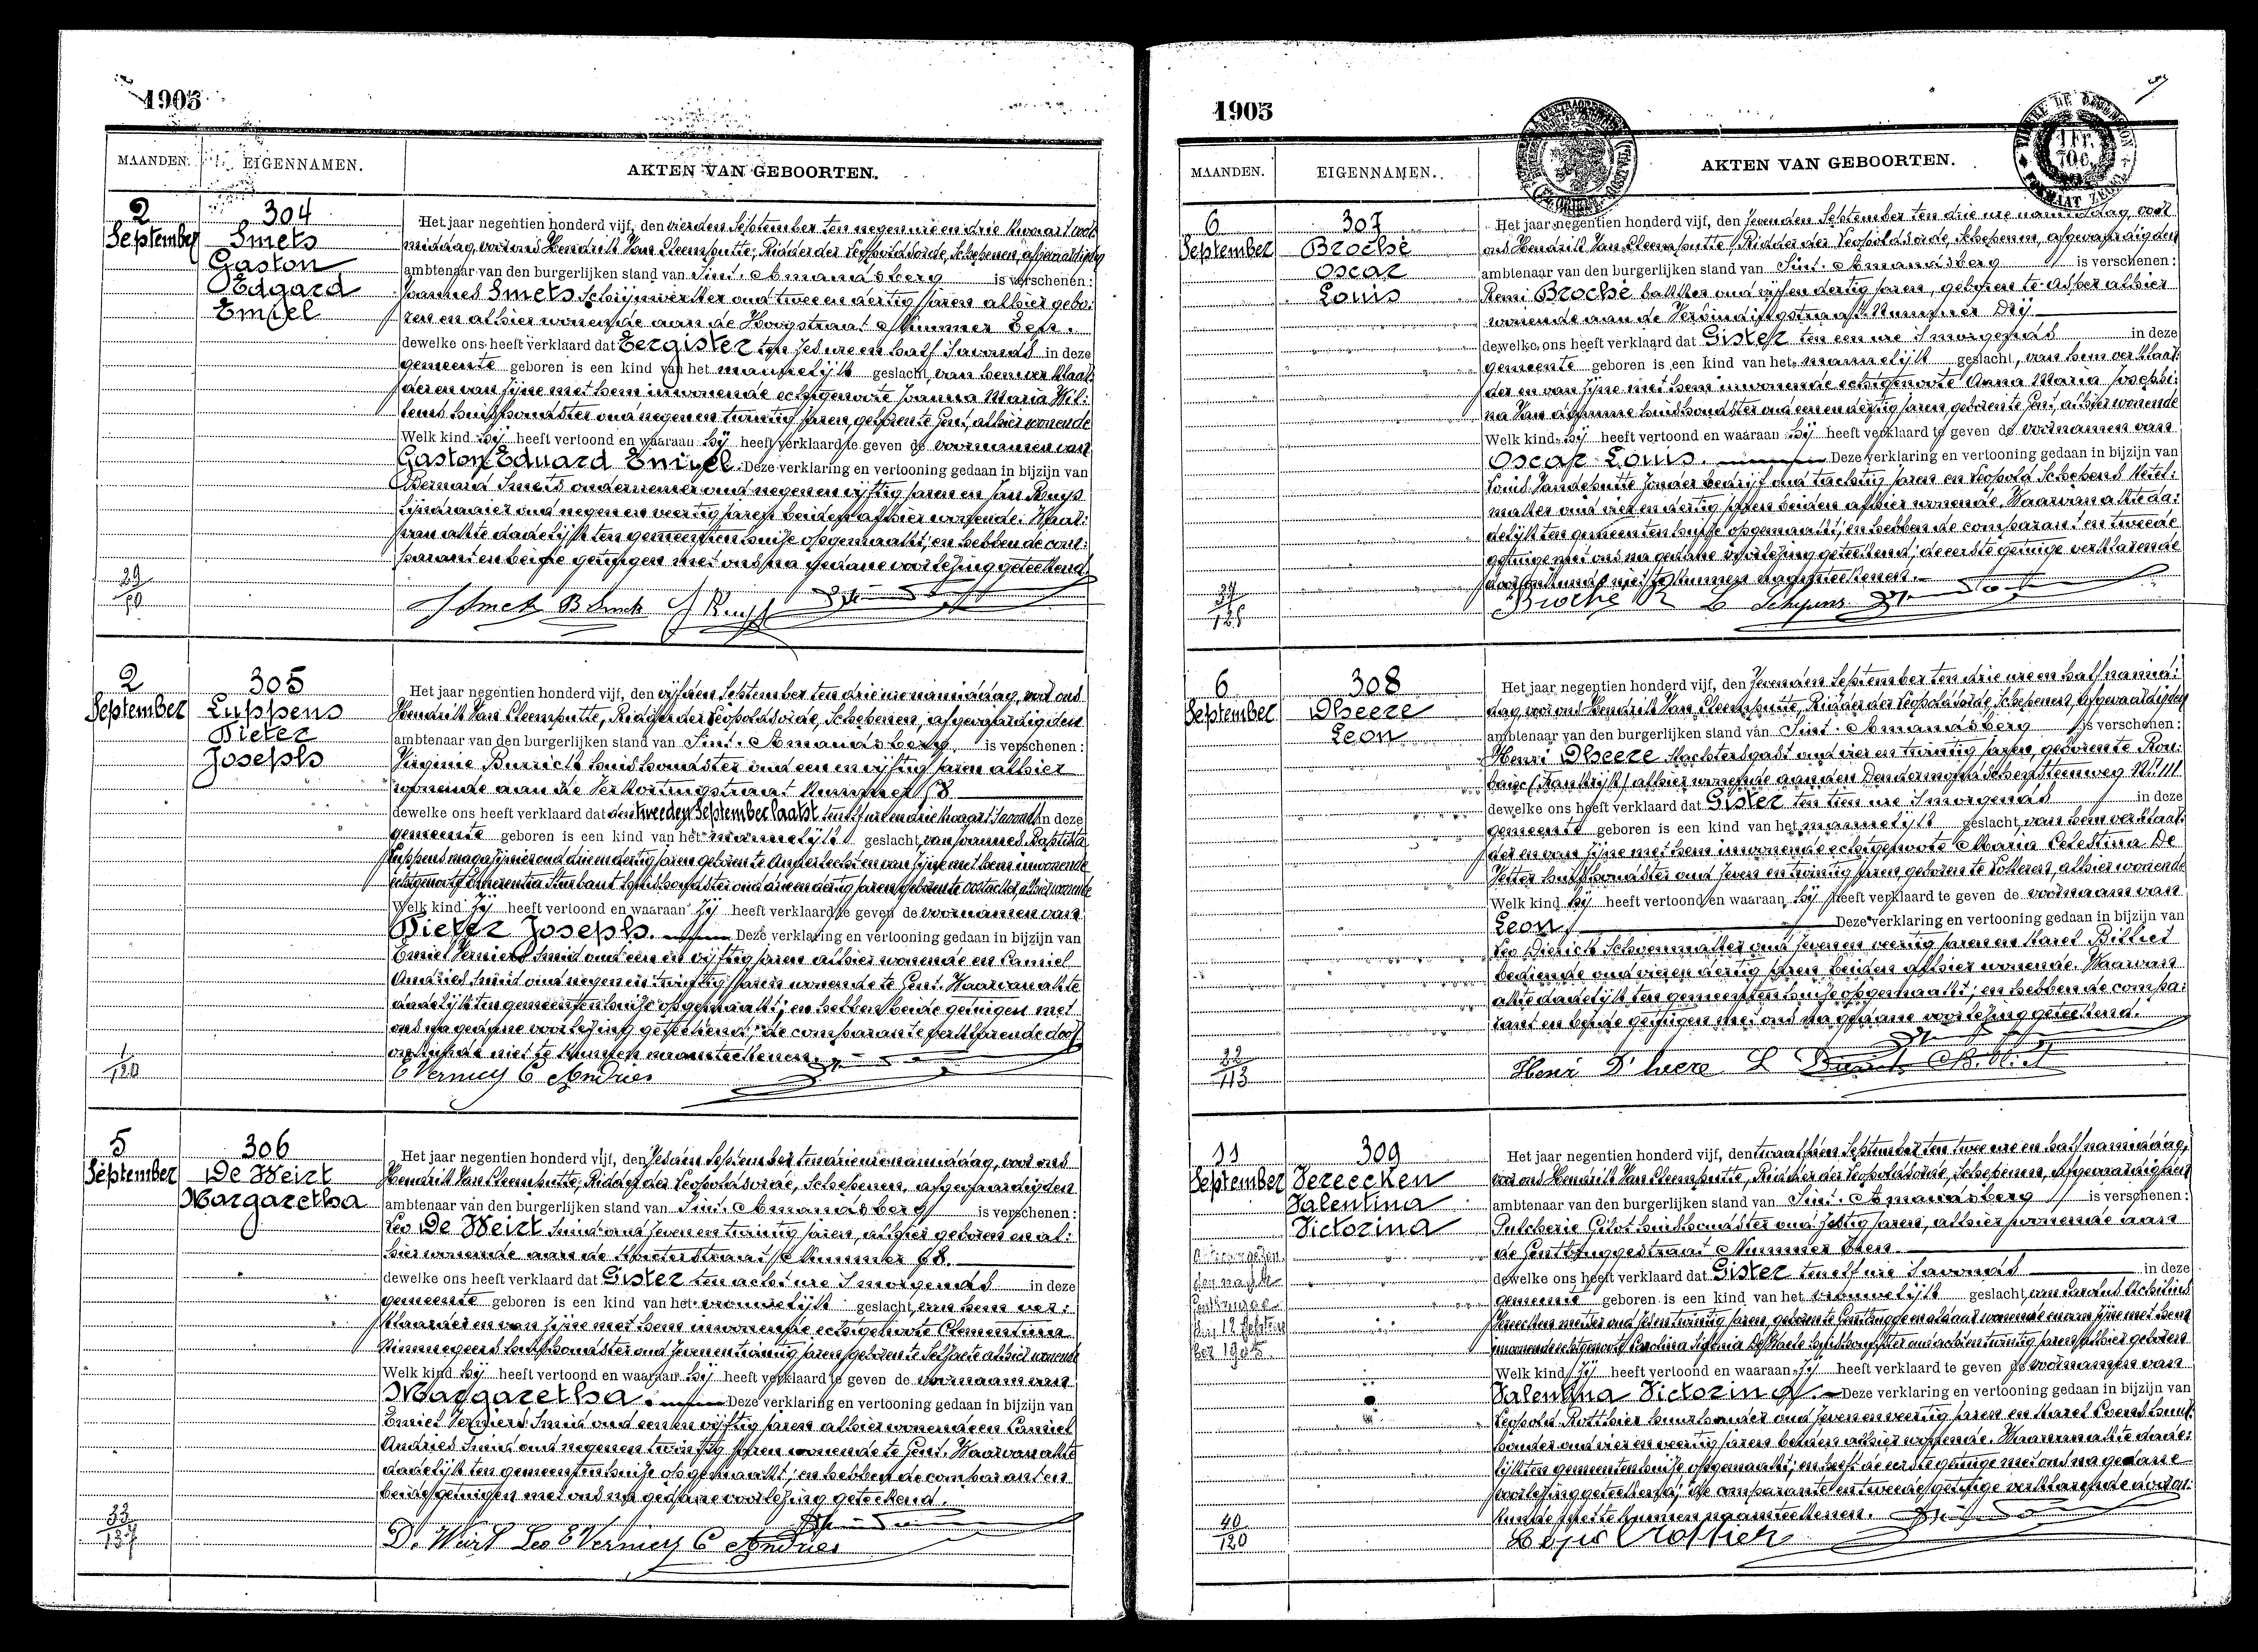 1905
MAANDEN. EIGENNAMEN. AKTEN VAN GEBOORTEN.
2
September
304
Smets
Gaston
Edgard
Emiel
Het jaar negentien honderd vijf, den vierden September ten negen ure en drie kwaart voor-
middag, voor ons Hendrik Van Cleemputte, Ridder der Leopoldsorde, Schepenen, afgevaardigden
ambtenaar van den burgerlijken stand van Sint-Amandsberg is verschenen:
Joannes Smets schrijnwerker oud twee en dertig jaren alhier gebo-
ren en alhier wonende aan de Hoogstraat Nummer Een.
dewelke ons heeft verklaard dat Eergister ten zes ure en half 's avonds in deze
gemeente geboren is een kind van het mannelijk geslacht, van hem verklaar-
der en van zijne met hem inwonende echtgenoote Joanna Maria Wil-
lems huishoudster oud negen en twintig jaren, geboren te Gent, alhier wonende
Welk kind hij heeft vertoond en waaraan hij heeft verklaard te geven de voornamen van
Gaston Eduard Emiel. Deze verklaring en vertooning gedaan in bijzijn van
Bernard Smets ondernemer oud negen en vijftig jaren en Jan Ruys
lijndraaier oud negen en veertig jaren beiden alhier wonende. Waar-
van akte dadelijk ten gemeentenhuize opgemaakt; en hebben de com-
parant en beide getuigen met ons na gedane voorlezing geteekend.
J Smets B Smets J Ruys
29
2
September
305
Luppens
Pieter
Joseph
Het jaar negentien honderd vijf, den vijfden September ten drie ure namiddag, voor ons
Hendrik Van Cleemputte, Ridder der Leopoldsorde, Schepenen, afgevaardigden
ambtenaar van den burgerlijken stand van Sint-Amandsberg is verschenen:
Virginie Burrick huishoudster oud een en vijftig jaren alhier
wonende aan de Verkortingstraat Nummer 58
dewelke ons heeft verklaard dat den tweeden September laatst ten elf ure en drie kwaart 's avonds in deze
gemeente geboren is een kind van het mannelijk geslacht, van Joannes Baptista
Luppens magazijnier oud drie en dertig jaren geboren te Anderlecht en van zijne met hem inwonende
echtgenoote huishoudster oud drie en dertig jaren geboren te Oostacker, alhier wonende
Welk kind zij heeft vertoond en waaraan zij heeft verklaard te geven de voornamen van
Pieter Joseph. Deze verklaring en vertooning gedaan in bijzijn van
Emiel Verniers smid oud een en vijftig jaren alhier wonende en Camiel
Andries smid oud negen en twintig jaren wonende te Gent. Waarvan akte
dadelijk ten gemeentenhuize opgemaakt; en hebben beide getuigen met
ons na gedane voorlezing geteekend; de comparante verklarende door
onkunde niet te kunnen naamteekenen.
E Verniers C Andries
1
120
5
September
306
De Weirt
Margaretha
Het jaar negentien honderd vijf, den zesden September ten drie ure namiddag, voor ons
Hendrik Van Cleemputte, Ridder der Leopoldsorde, Schepenen, afgevaardigden
ambtenaar van den burgerlijken stand van Sint-Amandsberg is verschenen:
Leo De Weirt smid oud zeven en twintig jaren, alhier geboren en al-
hier wonende aan de straat Nummer 68.
dewelke ons heeft verklaard dat Gister ten acht ure 's morgends in deze
gemeente geboren is een kind van het vrouwelijk geslacht, van hem ver-
klaarder en van zijne met hem inwonende echtgenoote Clementina
huishoudster oud zeven en twintig jaren geboren te alhier wonende
Welk kind hij heeft vertoond en waaraan hij heeft verklaard te geven de voornaam van
Margaretha. Deze verklaring en vertooning gedaan in bijzijn van
Emiel Verniers smid oud een en vijftig jaren alhier wonende en Camiel
Andries smid oud negen en twintig jaren wonende te Gent. Waarvan akte
dadelijk ten gemeentenhuize opgemaakt; en hebben de comparant en
beide getuigen met ons na gedane voorlezing geteekend.
De Weirt Leo E Verniers C Andries
33
137
1905
MAANDEN. EIGENNAMEN. AKTEN VAN GEBOORTEN.
6
September
307
Broché
Oscar
Louis
Het jaar negentien honderd vijf, den zevenden September ten drie ure namiddag, voor
ons Hendrik Van Cleemputte, Ridder der Leopoldsorde, Schepenen, afgevaardigden
ambtenaar van den burgerlijken stand van Sint-Amandsberg is verschenen:
Remi Broché bakker oud vijf en dertig jaren, geboren te Asper alhier
wonende aan de Verbindingstraat Nummer Drij
dewelke ons heeft verklaard dat Gister ten een ure 's morgends in deze
gemeente geboren is een kind van het mannelijk geslacht, van hem verklaar-
der en van zijne met hem inwonende echtgenoote Anna Maria Josephi-
na Van huishoudster oud een en dertig jaren, geboren te Gent, alhier wonende
Welk kind hij heeft vertoond en waaraan hij heeft verklaard te geven de voornamen van
Oscar Louis. Deze verklaring en vertooning gedaan in bijzijn van
Louis Vandeputte zonder bedrijf oud tachtig jaren en Leopold Schepens ketel-
maker oud vier en dertig jaren beiden alhier wonende. Waarvan akte da-
delijk ten gemeentenhuize opgemaakt; en hebben de comparant en tweede
getuige met ons na gedane voorlezing geteekend; de eerste getuige verklarende
door onkunde niet te kunnen naamteekenen.
Broché R L Schepens
6
September
308
Dheere
Leon
Het jaar negentien honderd vijf, den zevenden September ten drie ure en half namid-
dag, voor ons Hendrik Van Cleemputte, Ridder der Leopoldsorde, Schepenen, afgevaardigden
ambtenaar van den burgerlijken stand van Sint-Amandsberg is verschenen:
Henri Dheere slachtersgast oud vier en twintig jaren, geboren te Rou-
baix (Frankrijk) alhier wonende aan den Dendermondschen Steenweg Nr 111
dewelke ons heeft verklaard dat Gister ten tien ure 's morgends in deze
gemeente geboren is een kind van het mannelijk geslacht, van hem verklaar-
der en van zijne met hem inwonende echtgenoote Maria Celestina De
huishoudster oud zeven en twintig jaren geboren te Lotteren, alhier wonende
Welk kind hij heeft vertoond en waaraan hij heeft verklaard te geven de voornaam van
Leon Deze verklaring en vertooning gedaan in bijzijn van
Leo Dierick schoenmaker oud zeven en veertig jaren en Karel Billiet
bediende oud vier en dertig jaren beiden alhier wonende. Waarvan
akte dadelijk ten gemeentenhuize opgemaakt; en hebben de compa-
rant en beide getuigen met ons na gedane voorlezing geteekend.
Henri D'heere L Dierick K Billiet
22
113
11
September
309
Vereecken
Valentina
Victorina
Het jaar negentien honderd vijf, den twaalfden September ten twee ure en half namiddag,
voor ons Hendrik Van Cleemputte, Ridder der Leopoldsorde, Schepenen, afgevaardigden
ambtenaar van den burgerlijken stand van Sint-Amandsberg is verschenen:
Pulcherie Gilot huishoudster oud zestig jaren, alhier wonende aan
de Gentbruggestraat Nummer Een
dewelke ons heeft verklaard dat Gister ten elf ure 's avonds in deze
gemeente geboren is een kind van het vrouwelijk geslacht, van Carolus Achilius
Vereecken oud zes en twintig jaren, geboren te Gentbrugge en aldaar wonende en van zijne met hem
inwonende echtgenoote Carolina huishoudster oud acht en twintig jaren alhier geboren
Welk kind zij heeft vertoond en waaraan zij heeft verklaard te geven de voornamen van
Valentina Victorina. Deze verklaring en vertooning gedaan in bijzijn van
Leopold Rotthier huurhouder oud zeven en veertig jaren en Karel Coens huur-
houder oud vier en veertig jaren beiden alhier wonende. Waarvan akte dade-
lijk ten gemeentenhuize opgemaakt; en heeft de eerste getuige met ons na gedane
voorlezing geteekend; de comparante en tweede getuige verklarende door on-
kunde niet te kunnen naamteekenen.
40
120